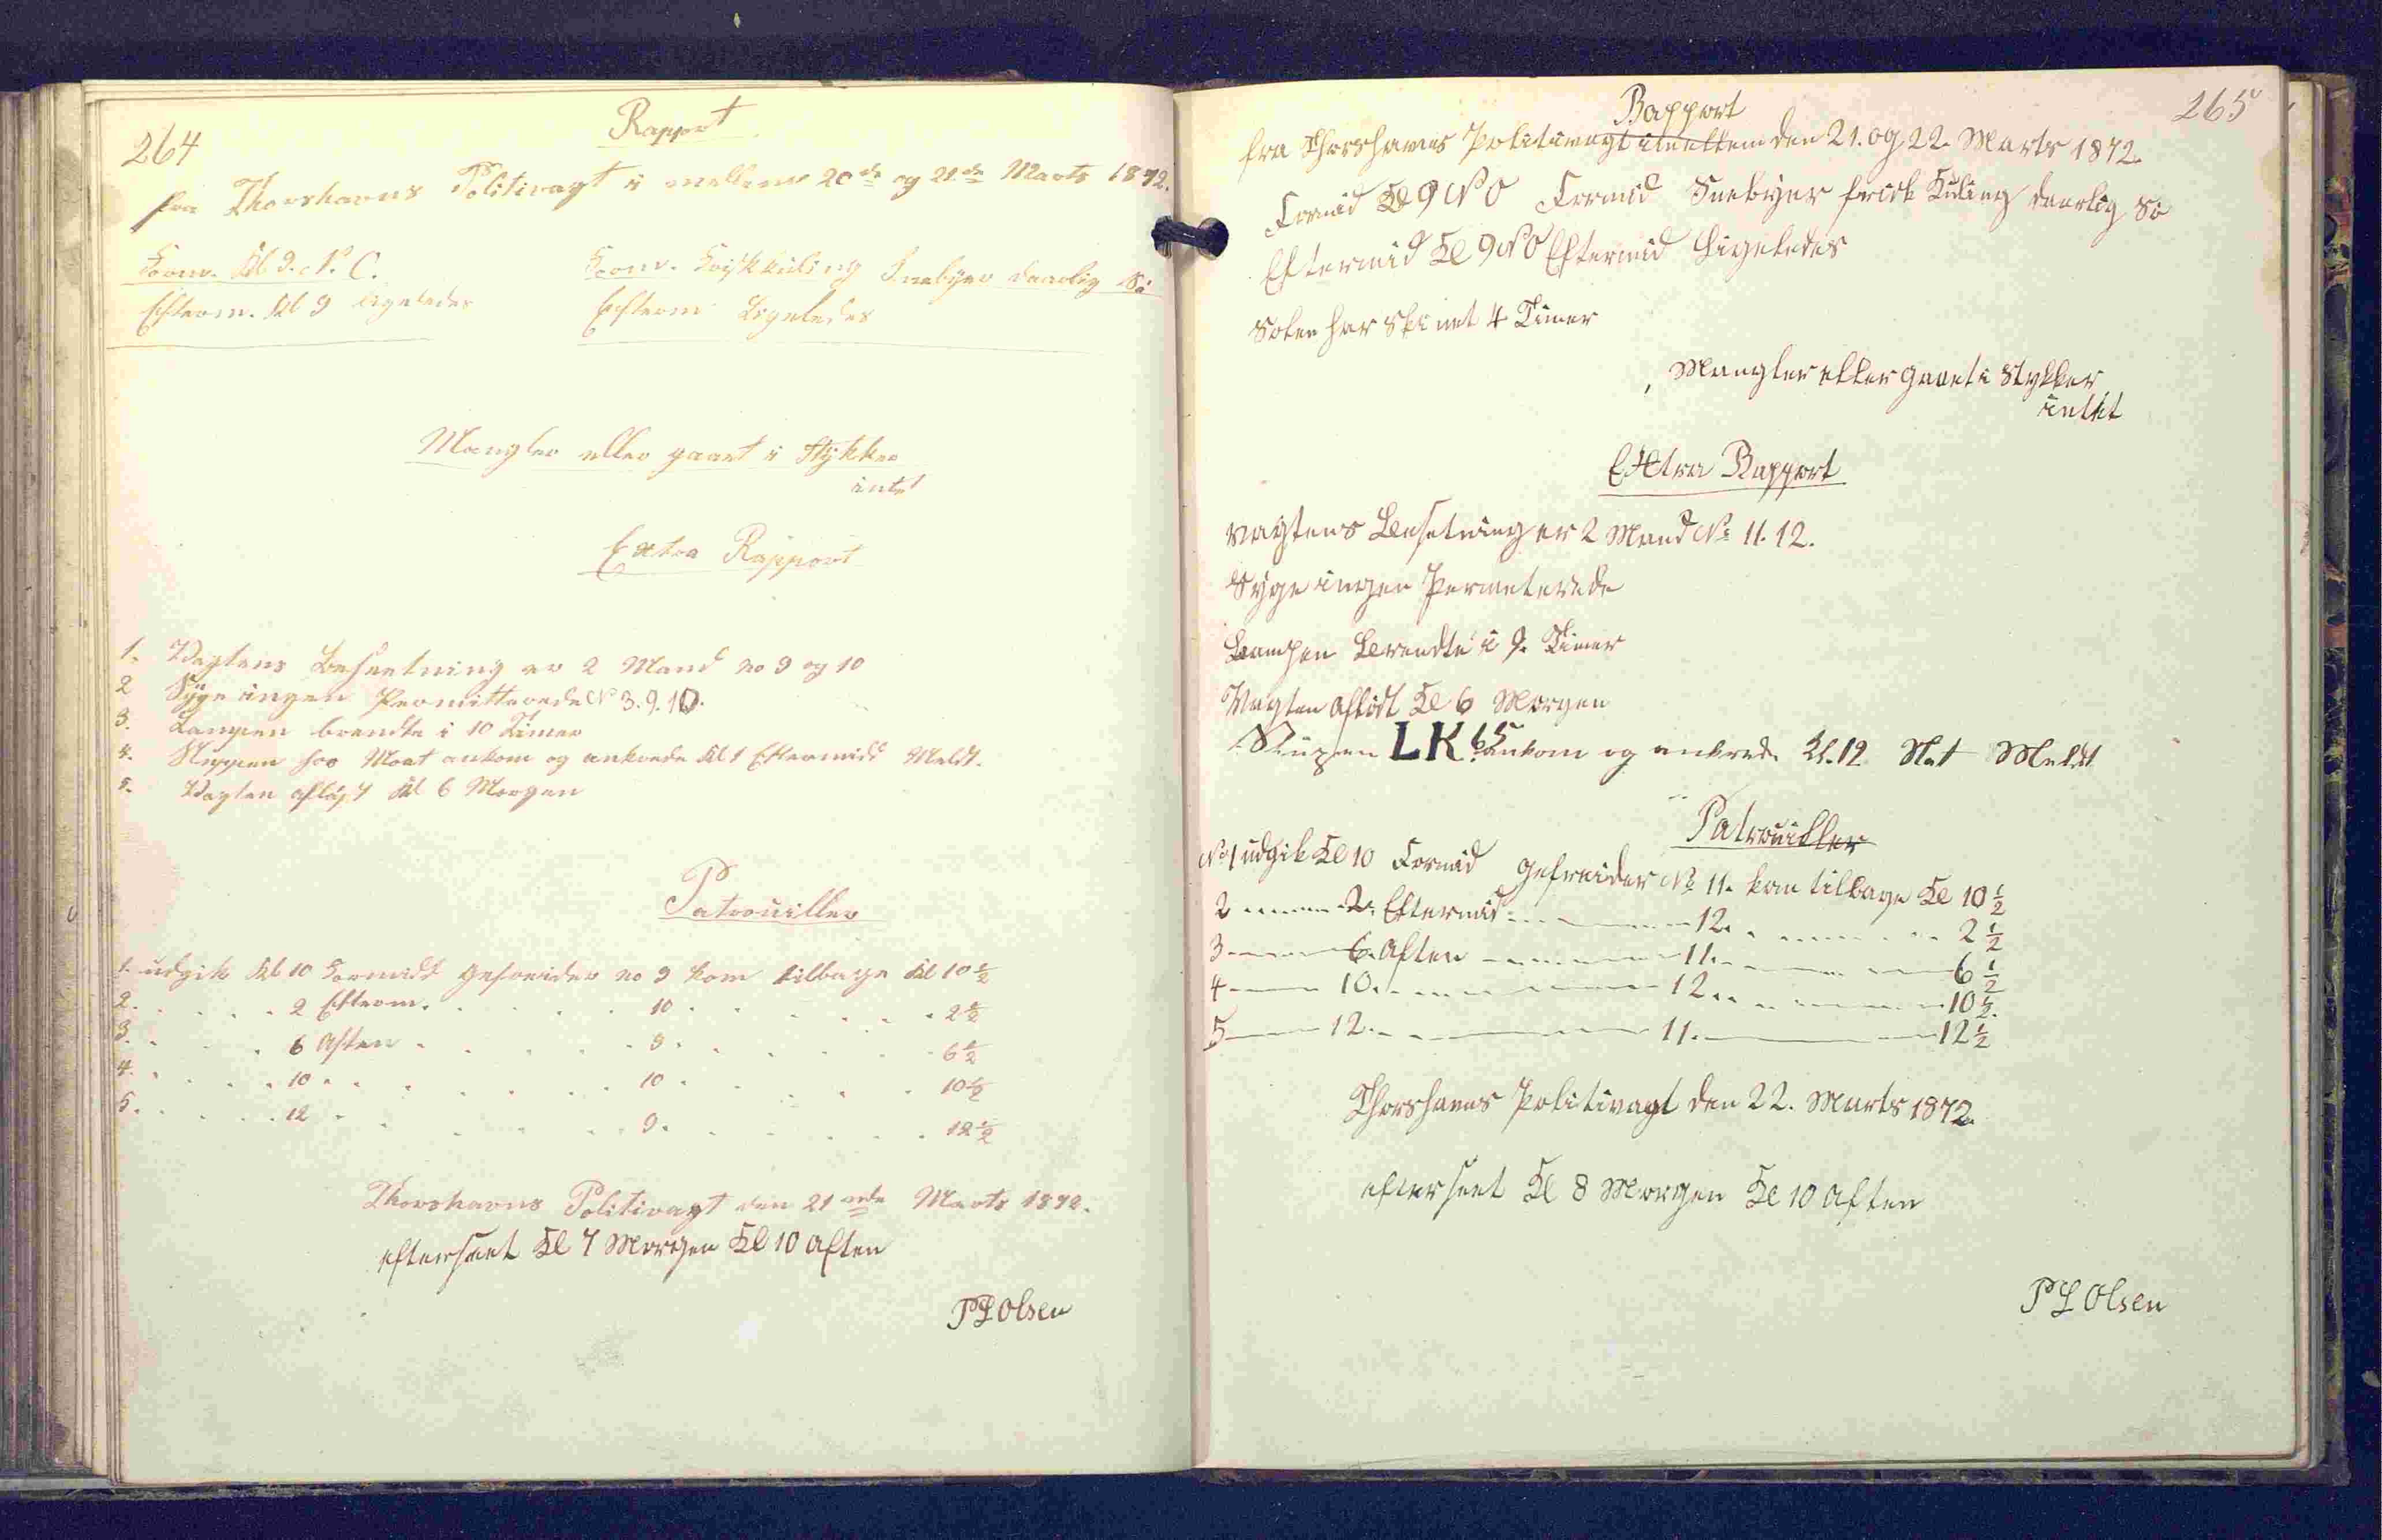 264
Rapport
fra Thorshavns Politivagt i mellem 20de og 21de Marts 1872.
Form. Kl 9. N. O.
Form. Friskkuling Snebyer daarlig Sö
Efterm. Kl 9 ligeledes
Efterm Ligeledes
Mangler eller gaaet i Stykker
intet
Extra Rapport
1. Vagtens Besætning er 2 Mand no 9 og 10
2 Syge ingen Permitterede No 3. 9. 10.
3. Lampen brendte i 10 Timer
4. Sluppen Moat ankom og ankrede Kl 1 Eftermidd Meldt.
5. Vagten afløst Kl 6 Morgen
Patrouiller
1. udgik Kl 10 Formidd gefreider no 9 kom tilbage Kl 10 1/2
2. . . . . 2 Efterm. . . . . 10 . . . . . 2 1/2
3. . . . . 6 Aften . . . . . 9 . . . . . 6 1/2
4. . . . . 10 . . . . . . 10 . . . . . 10 1/2
5. . . . . 12 . . . . . . 9 . . . . . 12 1/2
Thorshavns Politivagt den 21nde Marts 1872.
efterseet Kl 7 Morgen Kl 10 Aften
P L Olsen
265
Rapport
fra Thorshavns Politivagt imellem den 21. og 22. Marts 1872.
Formid Kl 9 N O Formid Snebyer frisk Kuling daarlig Sö
Eftermid Kl 9 N O Eftermid Ligeledes
Solen har Skinet 4 Timer
Mangler eller gaaet i Stykker
intet
Extra Rapport
Vagtens Besetning er 2 Mand No 11. 12.
Syge ingen Permeterede
Lampen Brendte i 9. Timer
Vagten afløst Kl 6 Morgen
Slupen LK 65 ankom og ankrede Kl. 12 Nat Meldt
Patrouiller
No 1 udgik Kl 10 Formid gefreider No 11. kom tilbage Kl 10 1/2
2 ---- 2. Eftermid ---- 12. ---- 2 1/2
3 ---- 6. Aften ---- 11. ---- 6 1/2
4 ---- 10. ---- 12. ---- 10 1/2
5 ---- 12. ---- 11. ---- 12 1/2
Thorshavns Politivagt den 22. Marts 1872
efterseet Kl 8 Morgen Kl 10 Aften
P L Olsen